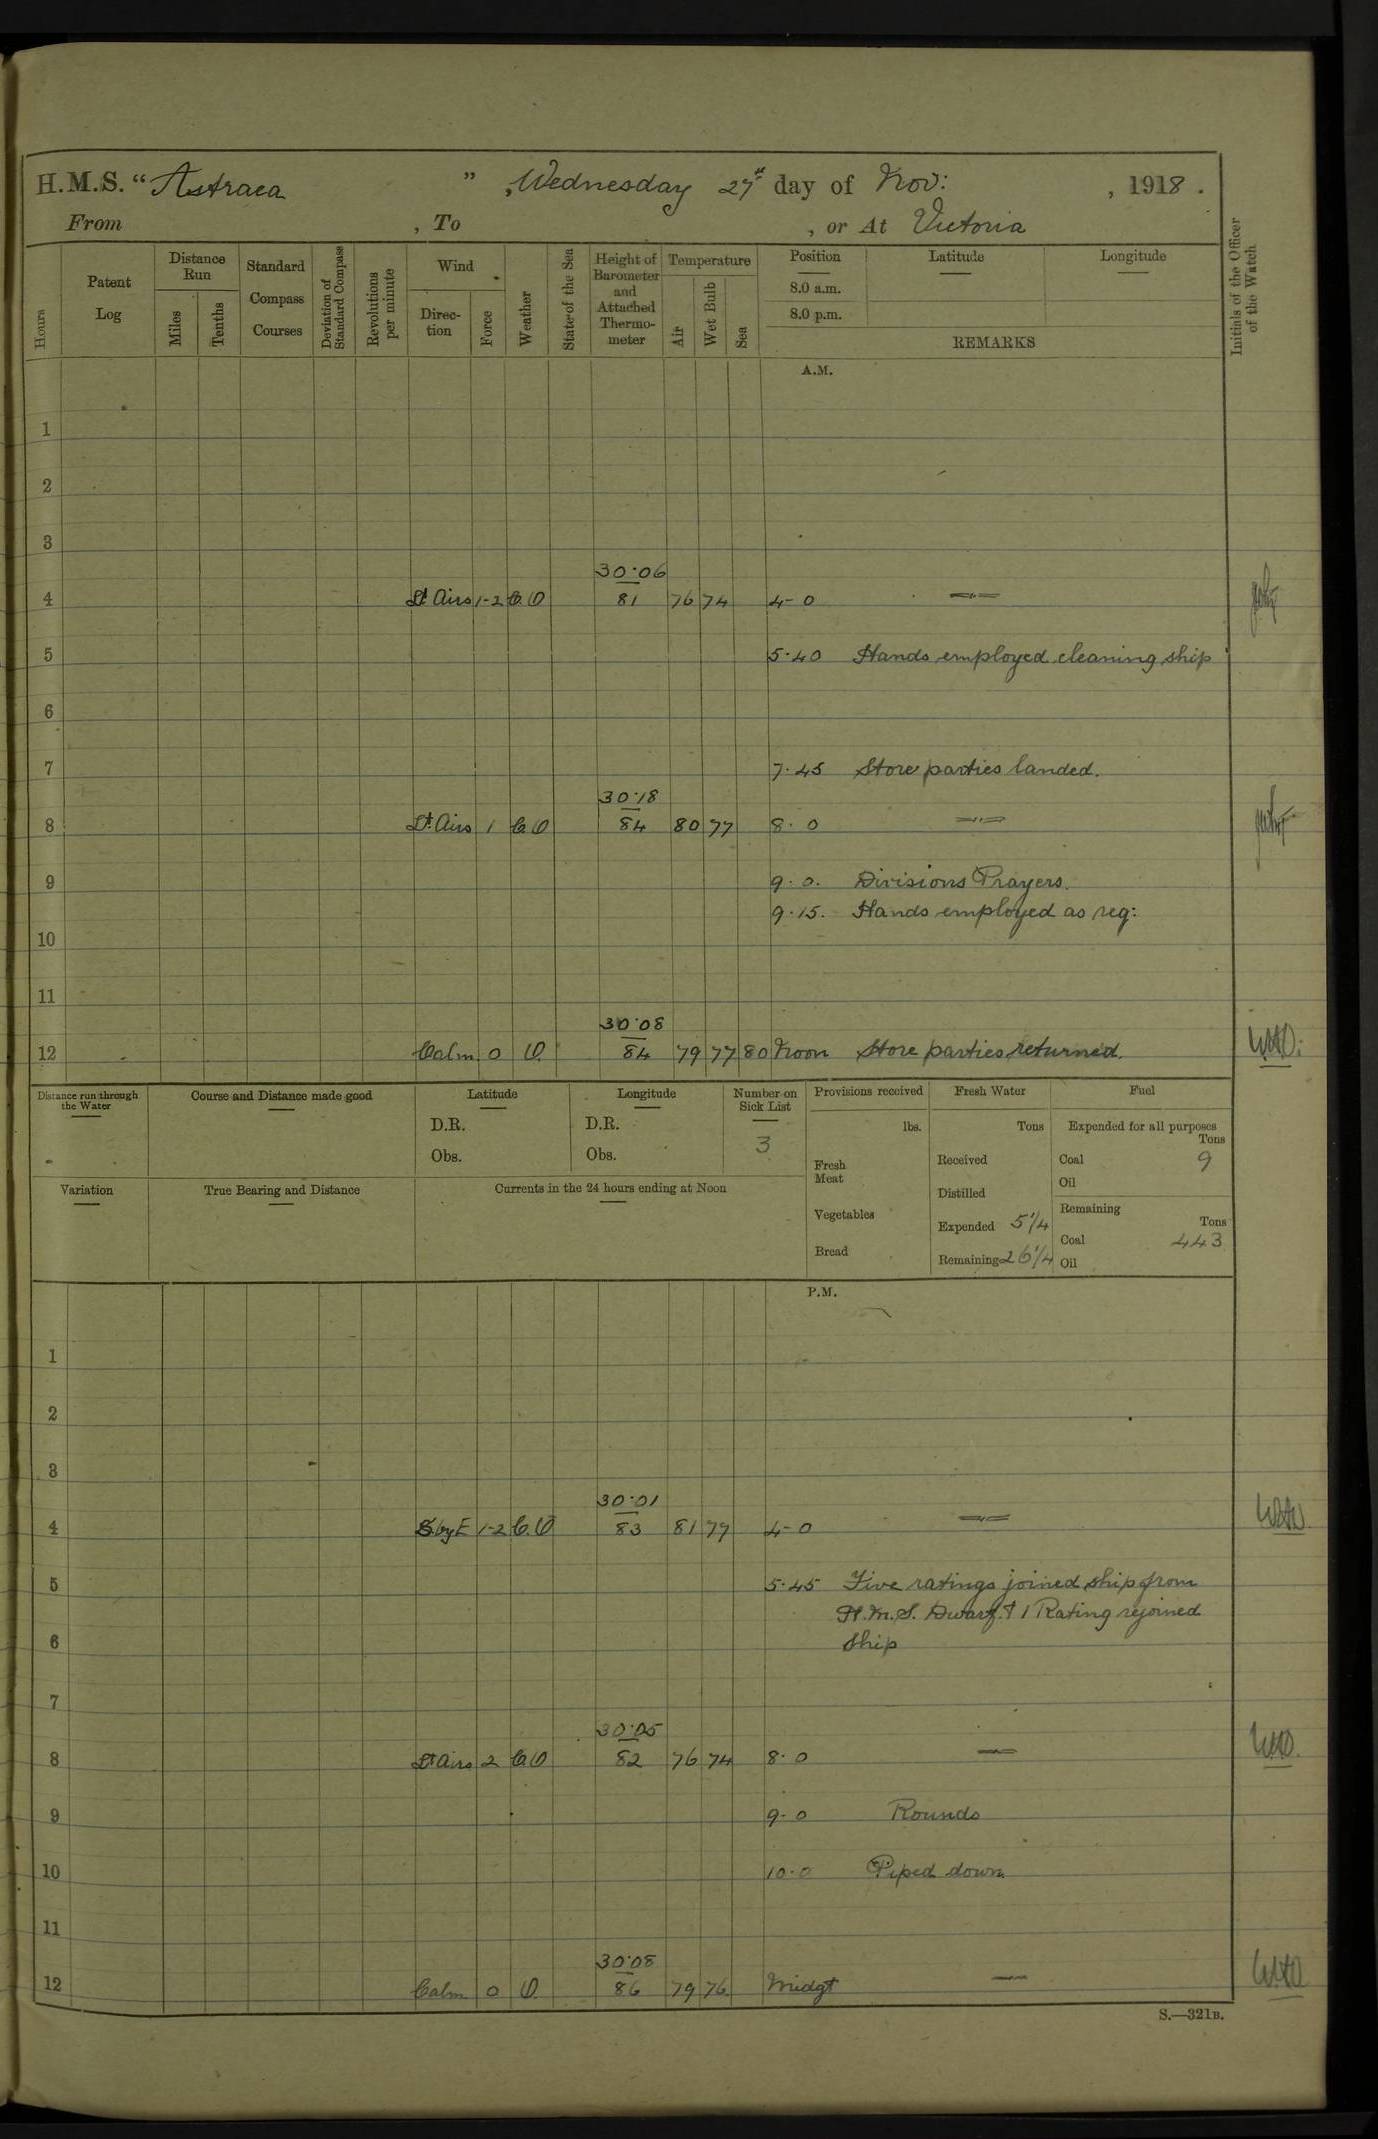 H.M.S. “Astraea ” , Wednesday 27th day of Nov: , 1918 .
From , To , or At Victoria
Hours
Patent Log
Distance Run
Miles
Tenths
Standard Compass Courses
Deviation of Standard Compass
Revolutions per minute
Wind
Direc-tion
Force
Weather
State of the Sea
Height of Barometer and Attached Thermo-meter
Temperature
Air
Wet Bulb
Sea
Position
8.0 a.m.
8.0 p.m.
Latitude
Longitude
REMARKS
Initials of the Officer of the Watch
A.M.
1
2
3
30·06
4 Lt Airs 1-2 C.O 81 76 74 4-0 —"—
5 5·40 Hands employed cleaning ship
6
7 7·45 Store parties landed.
30·18
8 Lt Airs 1 C.O 84 80 77 8·0 —"—
9 9·0. Divisions Prayers.
9·15. Hands employed as req:
10
11
30·08
12 Calm 0 O. 84 79 77 80 Noon Store parties returned.
Distance run through the Water
Course and Distance made good
Latitude
D.R.
Obs.
Longitude
D.R.
Obs.
Number on Sick List
3
Provisions received
lbs.
Fresh Meat
Vegetables
Bread
Fresh Water
Tons
Received
Distilled
Expended 5 1/4
Remaining 26 1/4
Fuel
Expended for all purposes
Tons
Coal 9
Oil
Remaining
Tons
Coal 443
Oil
Variation
True Bearing and Distance
Currents in the 24 hours ending at Noon
P.M.
1
2
3
30·01
4 S.byE 1-2 C.O 83 81 77 4-0 —"—
5 5·45 Five ratings joined ship from
H.M.S. Dwarf. & 1 Rating rejoined
6 ship
7
30·05
8 Lt Airs 2 C.O 82 76 74 8·0 —
9 9·0 Rounds
10 10·0 Piped down.
11
30·08
12 Calm 0 O. 86 79 76 Midgt —
S.—321B.